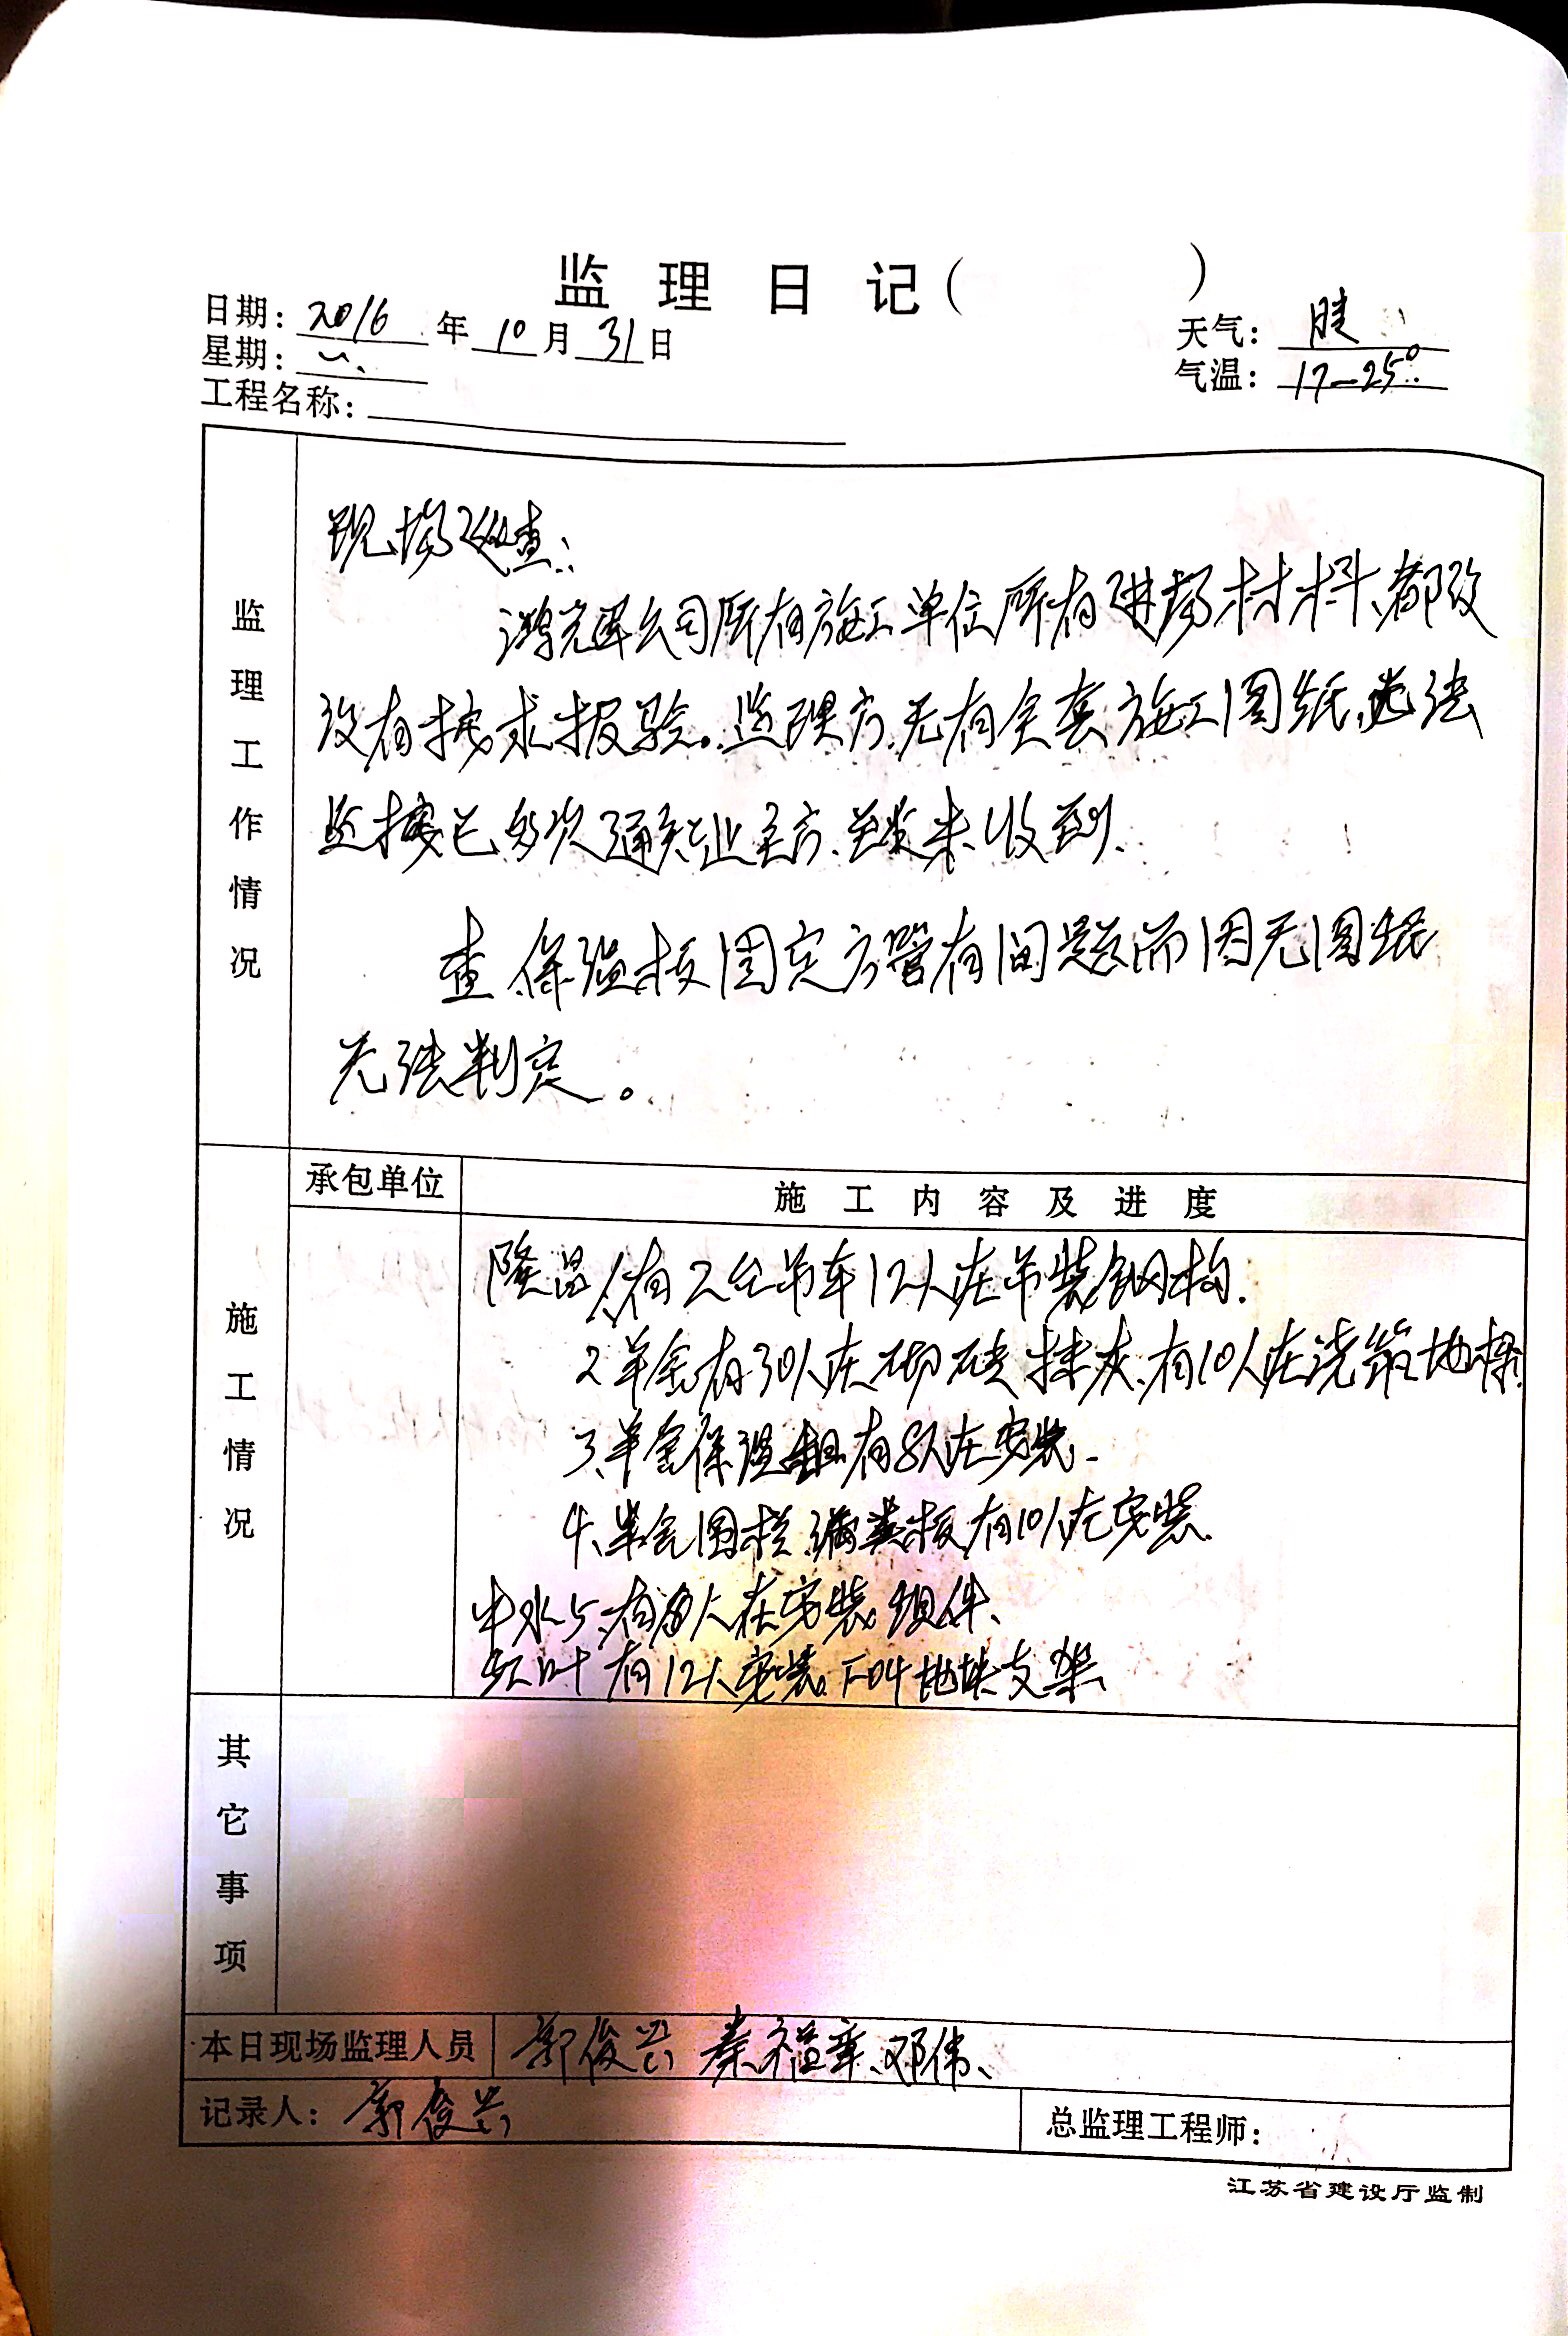 监理日记(　　　)
日期：2016年10月31日
天气：
星期：一、
气温：17—25°
工程名称：
监理工作情况
现场巡查：
公司所有施工单位所有进场材料、都
没有按求报验。监理方、无有全套施工图纸、无法
监控已多次通知业主方、至今未收到、
查、保温板固定方管有问题而因无图纸
无法判定。
承包单位
施工内容及进度
施工情况
隆昌1、有2台吊车12人在吊装钢构.
2羊舍有30人在砌砖抹灰、有10人在浇筑地
3、羊舍保温 有8人在安装.
4、羊舍围栏 板有10人在安装.
中水5、有 人在安装组件、
红叶 有12人安装F04地块支架
其它事项
本日现场监理人员 郭俊兴 秦福章、邓伟、
记录人：郭俊兴
总监理工程师：
江苏省建设厅监制